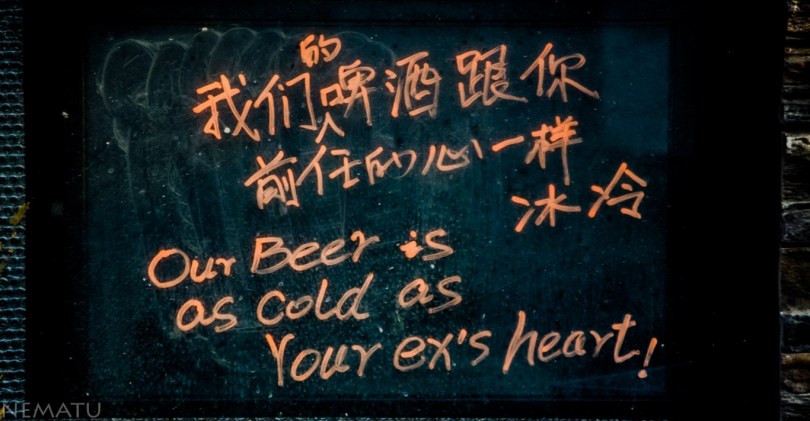 我们的啤酒跟你
前任的心一样
冰冷
Our Beer is
as cold as
Your ex's heart!
NEMATU